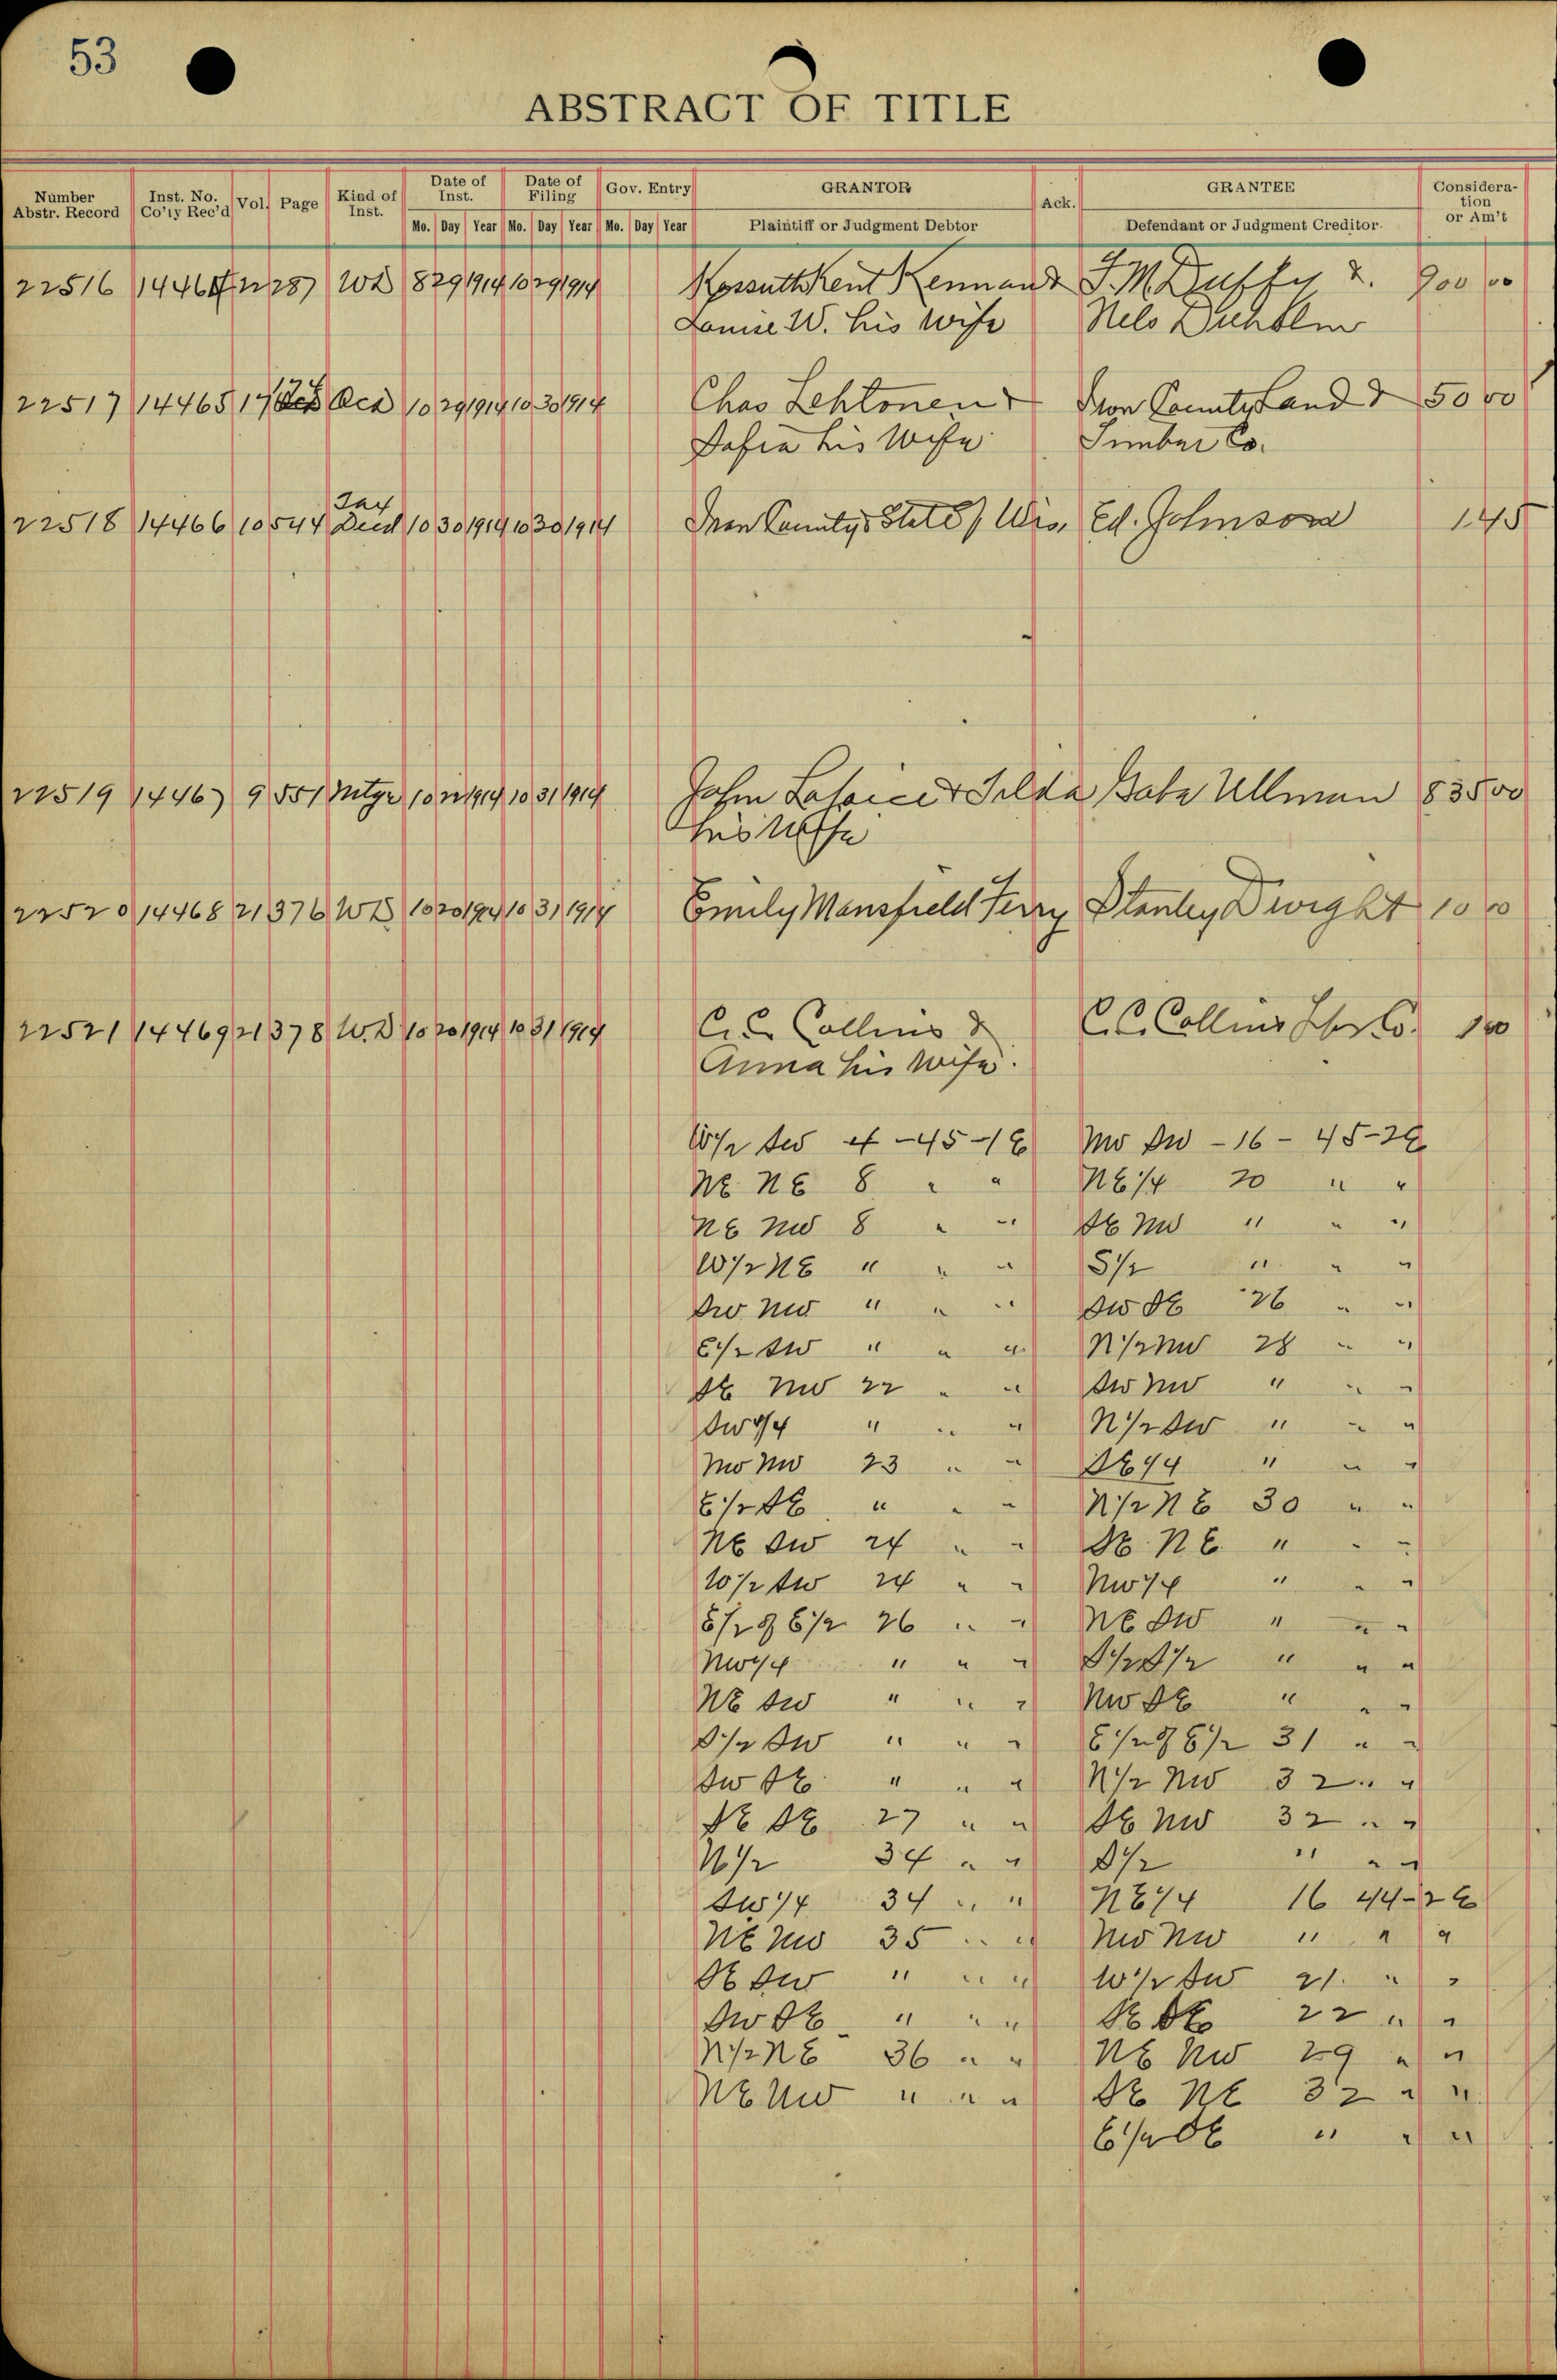 53
ABSTRACT OF TITLE
Number Abstr. Record Inst. No. Co'ty Rec'd Vol. Page Kind of Inst. Date of Inst. Date of Filing Gov. Entry GRANTOR Ack. GRANTEE Consideration or Am't
Mo. Day Year Mo. Day Year Mo. Day Year Plaintiff or Judgment Debtor Defendant or Judgment Creditor.
22516 14464 287 WD 8 29 1914 10 29 1914 Kossuth Kent Kennan & J.M. Duffy & 900 00
Louise W. his wife Nels
22517 14465 17 Ded 10 29 1914 10 30 1914 Chas Lehtonen & Iron County Land & 50 00
Sofia his Wife Timber Co.
Tax
22518 14466 10 544 Deed 10 30 1914 10 30 1914 Iron County & State of Wis. Ed. Johnson 1 45
22519 14467 9 551 Mtge 10 22 1914 10 31 1914 John & Hilda Gabe Ullman 835 00
his wife
22520 14468 21 376 WD 10 20 1914 10 31 1914 Emily Mansfield Ferry Stanley Dwight 10 00
22521 14469 21 378 W.D 10 20 1914 10 31 1914 C.C. Collins & C.C. Collins Lbr Co. 1 00
Anna his wife.
W 1/2 SW 4 -45-1E NW SW -16- 45-2E
NE NE 8 " " NE 1/4 20 " "
NE NW 8 " " SE NW " " "
W 1/2 NE " " " S 1/2 " " "
SW NW " " " SW SE 26 " "
E 1/2 SW " " " N 1/2 NW 28 " "
SE NW 22 " " SW NW " " "
SW 1/4 " " " N 1/2 SW " " "
NW NW 23 " " SE 1/4 " " "
E 1/2 SE " " " N 1/2 NE 30 " "
NE SW 24 " " SE NE " " "
W 1/2 SW 24 " " NW 1/4 " " "
E 1/2 of E 1/2 26 " " NE SW " " "
NW 1/4 " " " S 1/2 S 1/2 " " "
NE SW " " " NW SE " " "
S 1/2 SW " " " E 1/2 of E 1/2 31 " "
SW SE " " " N 1/2 NW 32 " "
SE SE 27 " " SE NW 32 " "
N 1/2 34 " " S 1/2 " " "
SW 1/4 34 " " NE 1/4 16 44-2E
NE NW 35 " " NW NW " " "
SE SW " " " W 1/2 SW 21 " "
SW SE " " " SE SE 22 " "
N 1/2 NE 36 " " NE NW 29 " "
NE NW " " " SE NE 32 " "
E 1/2 SE " " "